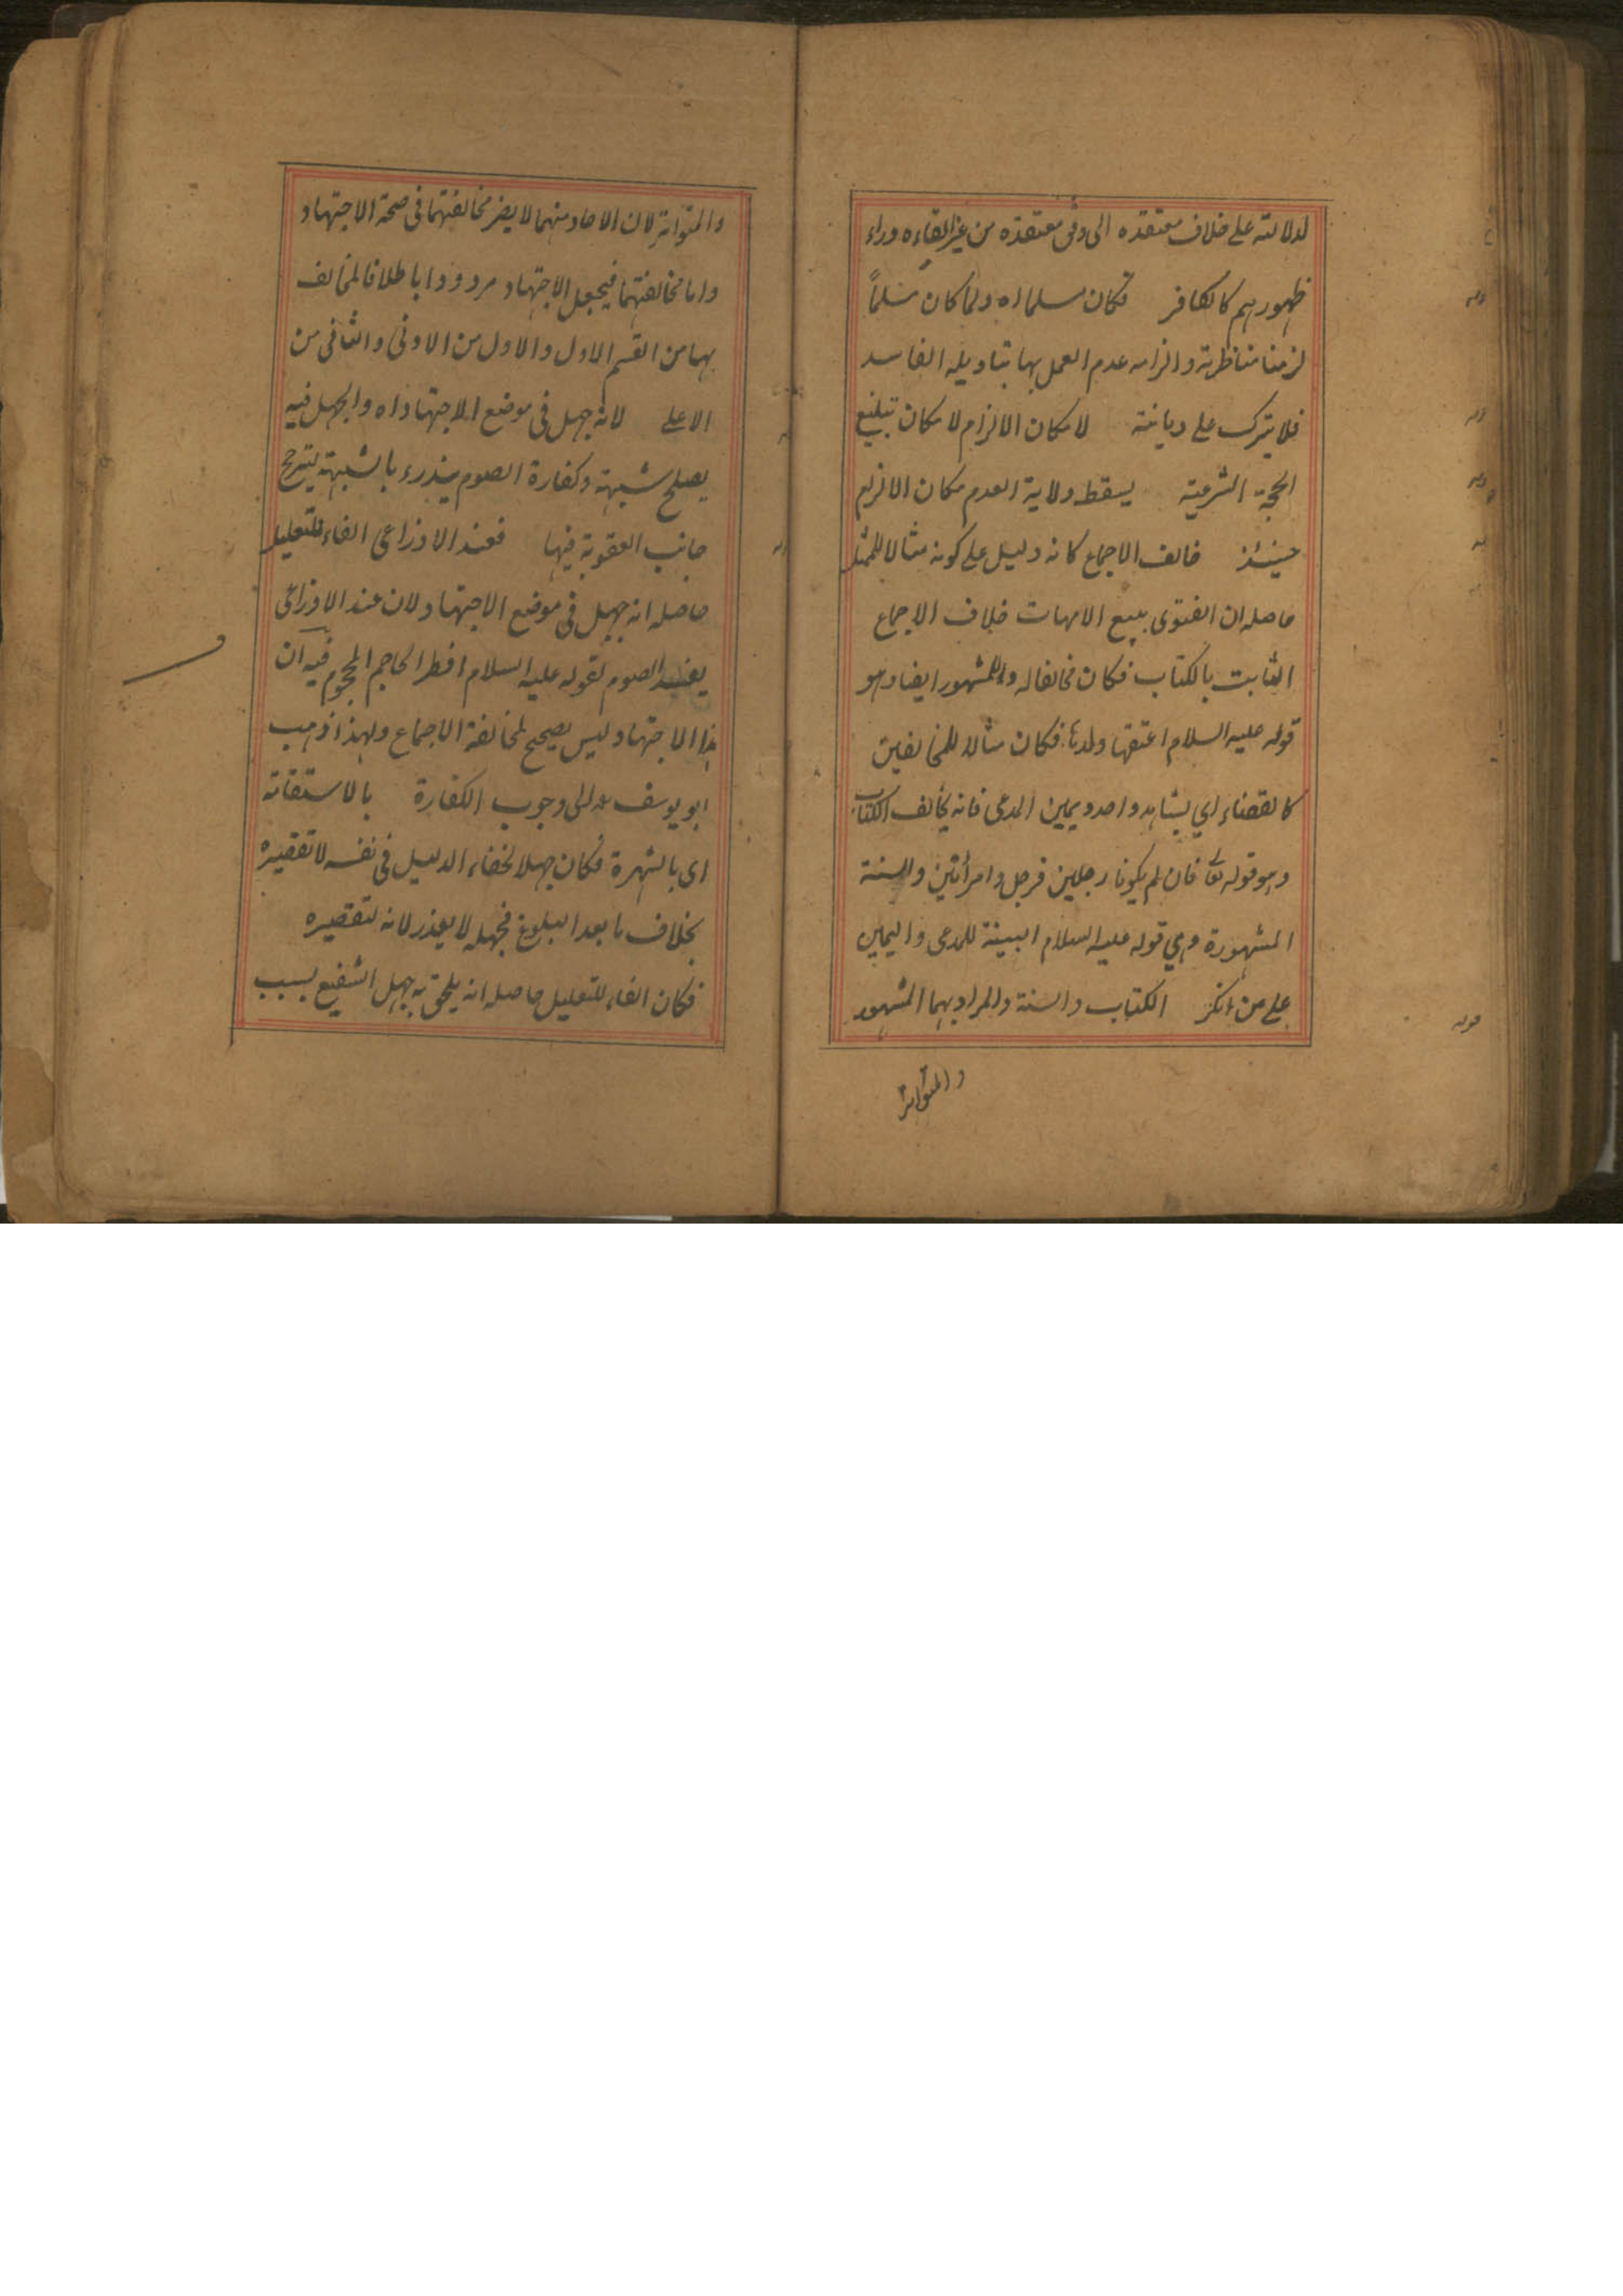 لدلالته على خلاف معتقده الى وفق معتقده من غير القاءه وراء
ظهورهم كالكافر فكان مسلما اه ولما كان مسلماً
لزمنا مناظرته والزامه عدم العمل بها بتاويله الفاسد
فلا يترك على ديانته لامكان الالزام لامكان تبليغ
الحجة الشرعية يسقط ولاية العدم مكان الالزام
حينئذ خالف الاجماع كانه دليل على كونه مثالا للممثل
حاصله ان الفتوى ببيع الامهات خلاف الاجماع
الثابت بالكتاب فكان مخالفا له وللمشهور ايضا وهو
قوله عليه السلام اعتقها ولدها فكان مثالا للمخالفين
كالقضاء اي بشاهد واحد ويمين المدعى فانه يخالف الكتاب
وهو قوله تعا فان لم يكونا رجلين فرجل وامرأتين والسنة
المشهورة وهي قوله عليه السلام البينة للمدعى واليمين
على من انكر الكتاب والسنة والمراد بهما المشهور
والمتواتر
قوله
قوله
قوله
قوله
والمتواتر لان الاحاد منهما لا يضر مخالفتهما فى صحة الاجتهاد
واما مخالفتهما فيجعل الاجتهاد مردودا باطلا فالمخالف
بها من القسم الاول والاول من الاونى والثانى من
الاعلى لانه جهل فى موضع الاجتهاد اه والجهل فيه
يصلح شبهة وكفارة الصوم يندرء بالشبهة يترجح
جانب العقوبة فيها فعند الاوزاعى الفاء للتعليل
حاصله انه جهل فى موضع الاجتهاد لان عند الاوزاعى
يفسد الصوم لقوله عليه السلام افطر الحاجم المحجوم فيه ان
هذا الاجتهاد ليس بصحيح لمخالفة الاجماع ولهذا ذهب
ابو يوسف الى وجوب الكفارة بالاستفاتة
اى بالشهرة فكان جهلا لخفاء الدليل فى نفسه لا تقصيره
بخلاف ما بعد البلوغ فجهله لا يعذر لانه لتقصيره
فكان الفاء للتعليل حاصله انه يلحق به جهل الشفيع بسبب